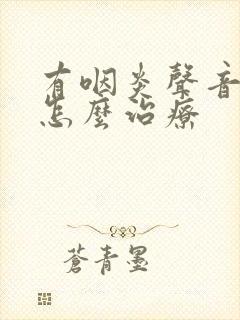 有咽炎聲音
怎麼治療
蒼青墨